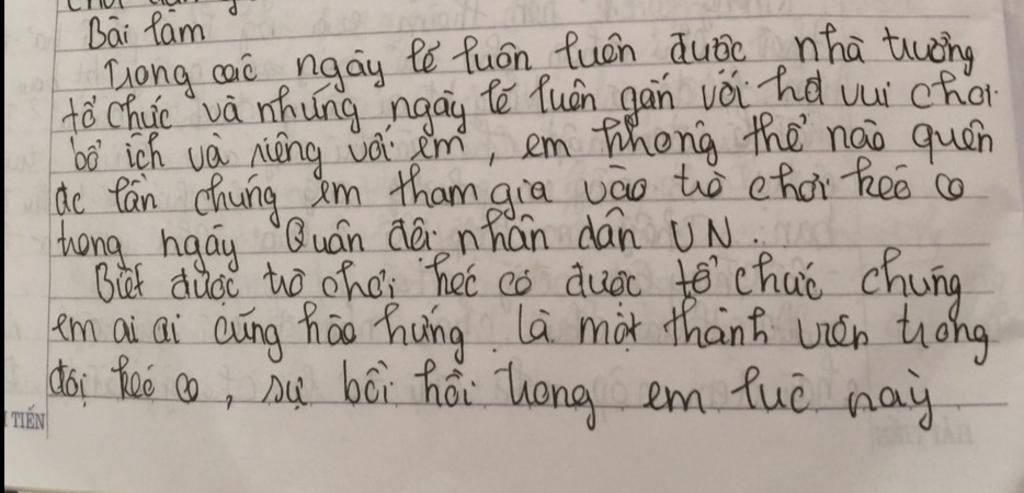 Bài làm
Trong các ngày lễ luôn luôn được nhà trường
tổ chức và những ngày lễ luôn gắn với hđ vui chơi
bổ ích và riêng với em, em không thể nào quên
đc lần chúng em tham gia vào trò chơi kéo co
trong ngày Quân đội nhân dân VN.
Biết được trò chơi kéo co được tổ chức chúng
em ai ai cũng hào hứng. Là một thành viên trong
đội kéo co, sự bồi hồi trong em lúc này
TIẾN